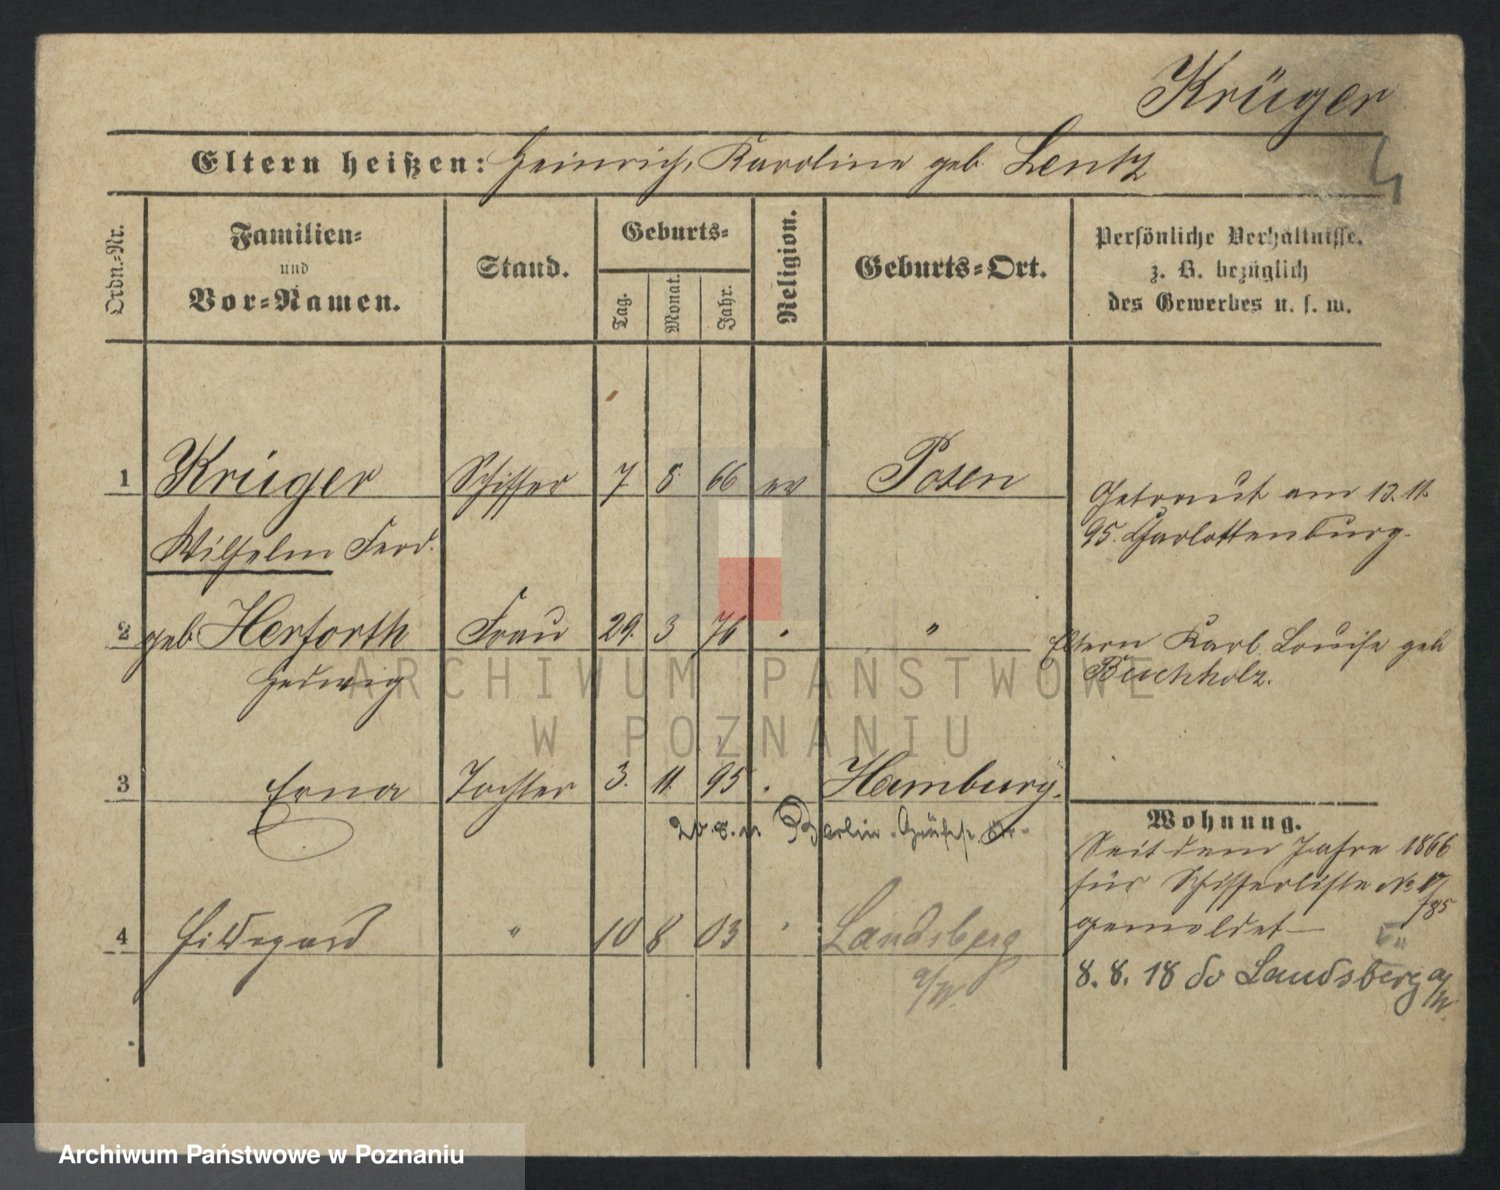 Krüger
Eltern heißen: Heinrich, Karoline geb. Lentz
Ordn.-Nr.
Familien- und Vor-Namen.
Stand.
Geburts-
Tag.
Monat.
Jahr.
Religion.
Geburts-Ort.
Persönliche Verhältnisse,
z. B. bezüglich
des Gewerbes u. s. w.
1 Krüger Schiffer 7 8. 66 ev Posen
Wilhelm Ferd.
Getraut am 13.11.
95. Charlottenburg.
2 geb Herforth Frau 29. 3 76 " "
Hedwig
Eltern Karl, Louise geb
Buchholz.
3 Erna Tochter 3. 11. 95 " Hamburg.
Berlin
4 Hildegard " 10 8 03 " Landsberg
a/W.
Wohnung.
Seit dem Jahre 1866
für Schifferliste No 17/85
gemeldet
8. 8. 18 do Landsberg a/W.
ARCHIWUM PAŃSTWOWE
W POZNANIU
Archiwum Państwowe w Poznaniu